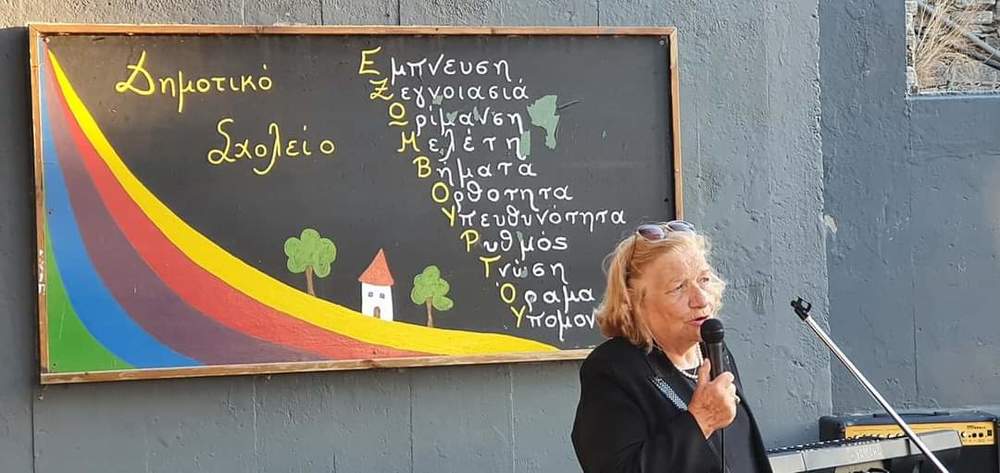 Δημοτικό
Σχολείο
Εμπνευση
Ξεγνοιασιά
Ωρίμανση
Μελέτη
Βήματα
Ορθότητα
Υπευθυνότητα
Ρυθμός
Γνώση
Όραμα
Υπομον